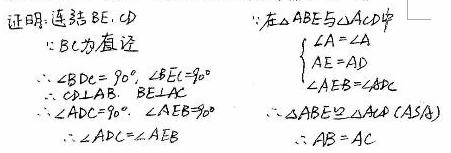 证明:连结BE.CD
∵BC为直径
∴∠BDC=90°,∠BEC=90°
∴CD⊥AB. BE⊥AC
∴∠ADC=90°. ∠AEB=90°
∴∠ADC=∠AEB
∵在△ABE与△ACD中
{∠A=∠A
AE=AD
∠AEB=∠ADC
∴△ABE≌△ACD(ASA)
∴AB=AC